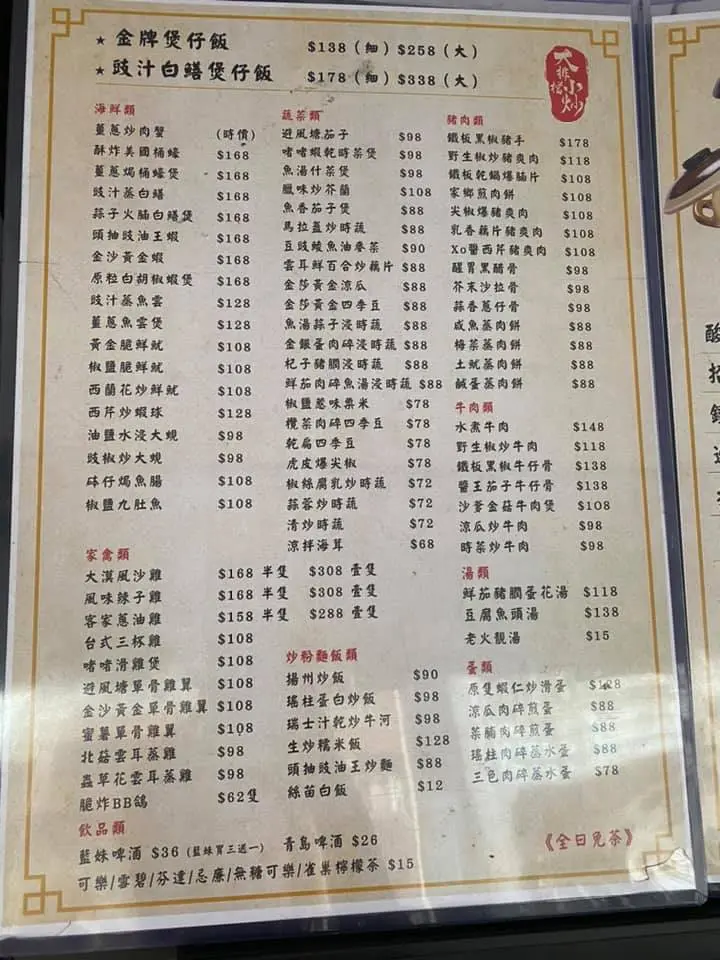 ★ 金牌煲仔飯 $138（細）$258（大）
★ 豉汁白鱔煲仔飯 $178（細）$338（大）
大排檔小炒
海鮮類
薑蔥炒肉蟹 (時價)
酥炸美國桶蠔 $168
薑蔥焗桶蠔煲 $168
豉汁蒸白鱔 $168
蒜子火腩白鱔煲 $168
頭抽豉油王蝦 $168
金沙黃金蝦 $168
原粒白胡椒蝦煲 $168
豉汁蒸魚雲 $128
薑蔥魚雲煲 $128
黃金脆鮮魷 $108
椒鹽脆鮮魷 $108
西蘭花炒鮮魷 $108
西芹炒蝦球 $128
油鹽水浸大蜆 $98
豉椒炒大蜆 $98
砵仔焗魚腸 $108
椒鹽九肚魚 $108
蔬菜類
避風塘茄子 $98
啫啫蝦乾時菜煲 $98
魚湯什菜煲 $98
臘味炒芥蘭 $108
魚香茄子煲 $88
馬拉盞炒時蔬 $88
豆豉鯪魚油麥菜 $90
雲耳鮮百合炒藕片 $88
金莎黃金涼瓜 $88
金莎黃金四季豆 $88
魚湯蒜子浸時蔬 $88
金銀蛋肉碎浸時蔬 $88
杞子豬膶浸時蔬 $88
鮮茄肉碎魚湯浸時蔬 $88
椒鹽惹味粟米 $78
欖菜肉碎四季豆 $78
乾扁四季豆 $78
虎皮爆尖椒 $78
椒絲腐乳炒時蔬 $72
蒜蓉炒時蔬 $72
清炒時蔬 $72
涼拌海茸 $68
豬肉類
鐵板黑椒豬手 $178
野生椒炒豬爽肉 $118
鐵板乾鍋爆腩片 $108
家鄉煎肉餅 $108
尖椒爆豬爽肉 $108
乳香藕片豬爽肉 $108
Xo醬西芹豬爽肉 $108
醒胃黑醋骨 $98
芥末沙拉骨 $98
蒜香蔥仔骨 $98
咸魚蒸肉餅 $88
梅菜蒸肉餅 $88
土魷蒸肉餅 $88
鹹蛋蒸肉餅 $88
牛肉類
水煮牛肉 $148
野生椒炒牛肉 $118
鐵板黑椒牛仔骨 $138
醬王茄子牛仔骨 $138
沙爹金菇牛肉煲 $108
涼瓜炒牛肉 $98
時菜炒牛肉 $98
家禽類
大漠風沙雞 $168 半隻 $308 壹隻
風味辣子雞 $168 半隻 $308 壹隻
客家蔥油雞 $158 半隻 $288 壹隻
台式三杯雞 $108
啫啫滑雞煲 $108
避風塘單骨雞翼 $108
金沙黃金單骨雞翼 $108
蜜薯單骨雞翼 $108
北菇雲耳蒸雞 $98
蟲草花雲耳蒸雞 $98
脆炸BB鴿 $62隻
炒粉麵飯類
揚州炒飯 $90
瑤柱蛋白炒飯 $98
瑞士汁乾炒牛河 $98
生炒糯米飯 $128
頭抽豉油王炒麵 $88
絲苗白飯 $12
湯類
鮮茄豬膶蛋花湯 $118
豆腐魚頭湯 $138
老火靚湯 $15
蛋類
原隻蝦仁炒滑蛋 $128
涼瓜肉碎煎蛋 $88
菜脯肉碎煎蛋 $88
瑤柱肉碎蒸水蛋 $88
三色肉碎蒸水蛋 $78
飲品類
藍妹啤酒 $36 (藍妹買三送一) 青島啤酒 $26
可樂/雪碧/芬達/忌廉/無糖可樂/雀巢檸檬茶 $15
《全日免茶》